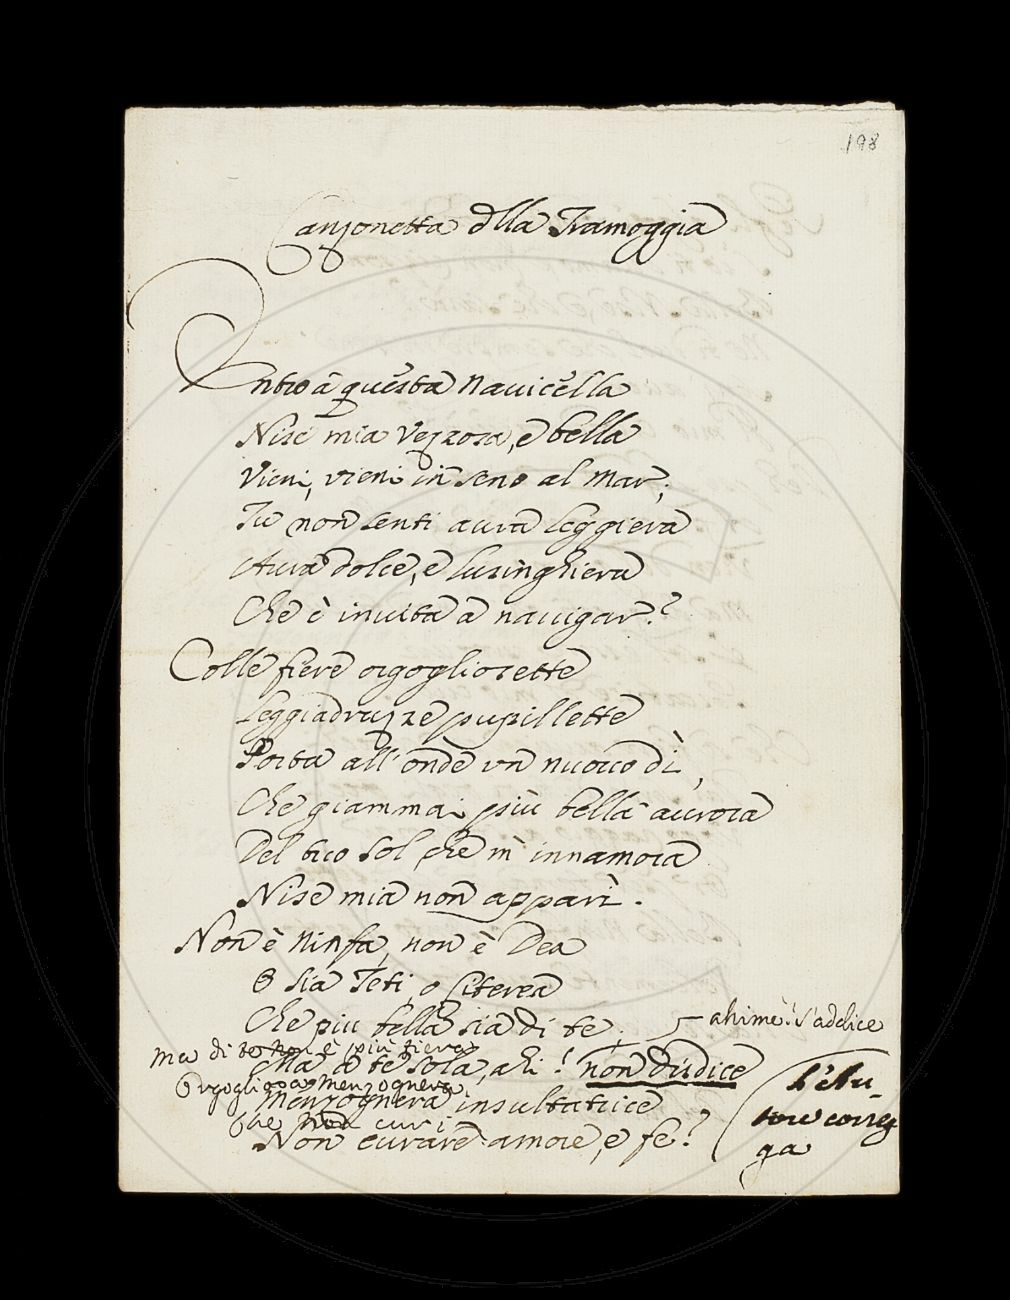 198
Canzonetta dlla Tramoggia
Entro à questa Navicella
Nise mia vezzosa, e bella
Vieni, vieni in seno al Mar;
Tu non senti aura leggiera
Aura dolce, e lusinghiera
Che è invita a navigar?
Colle fiere orgogliosette
Leggiadruzze pupillette
Porta all'onde un nuovo dì,
Che giammai più bella aurora
Del tuo Sol, che m'innamora
Nise mia non apparì.
Non è Ninfa, non è Dea
O sia Teti, o Citerea
Che piu bella sia di te;
ahimè! s'addice
ma di te non è più fiera
Ma a te sola, ahi! non dìsdice
Orgogliosa menzognera
menzognera insultatrice
che non curi
Non curare amore, e fe?
l'Au-
tore correg
ga